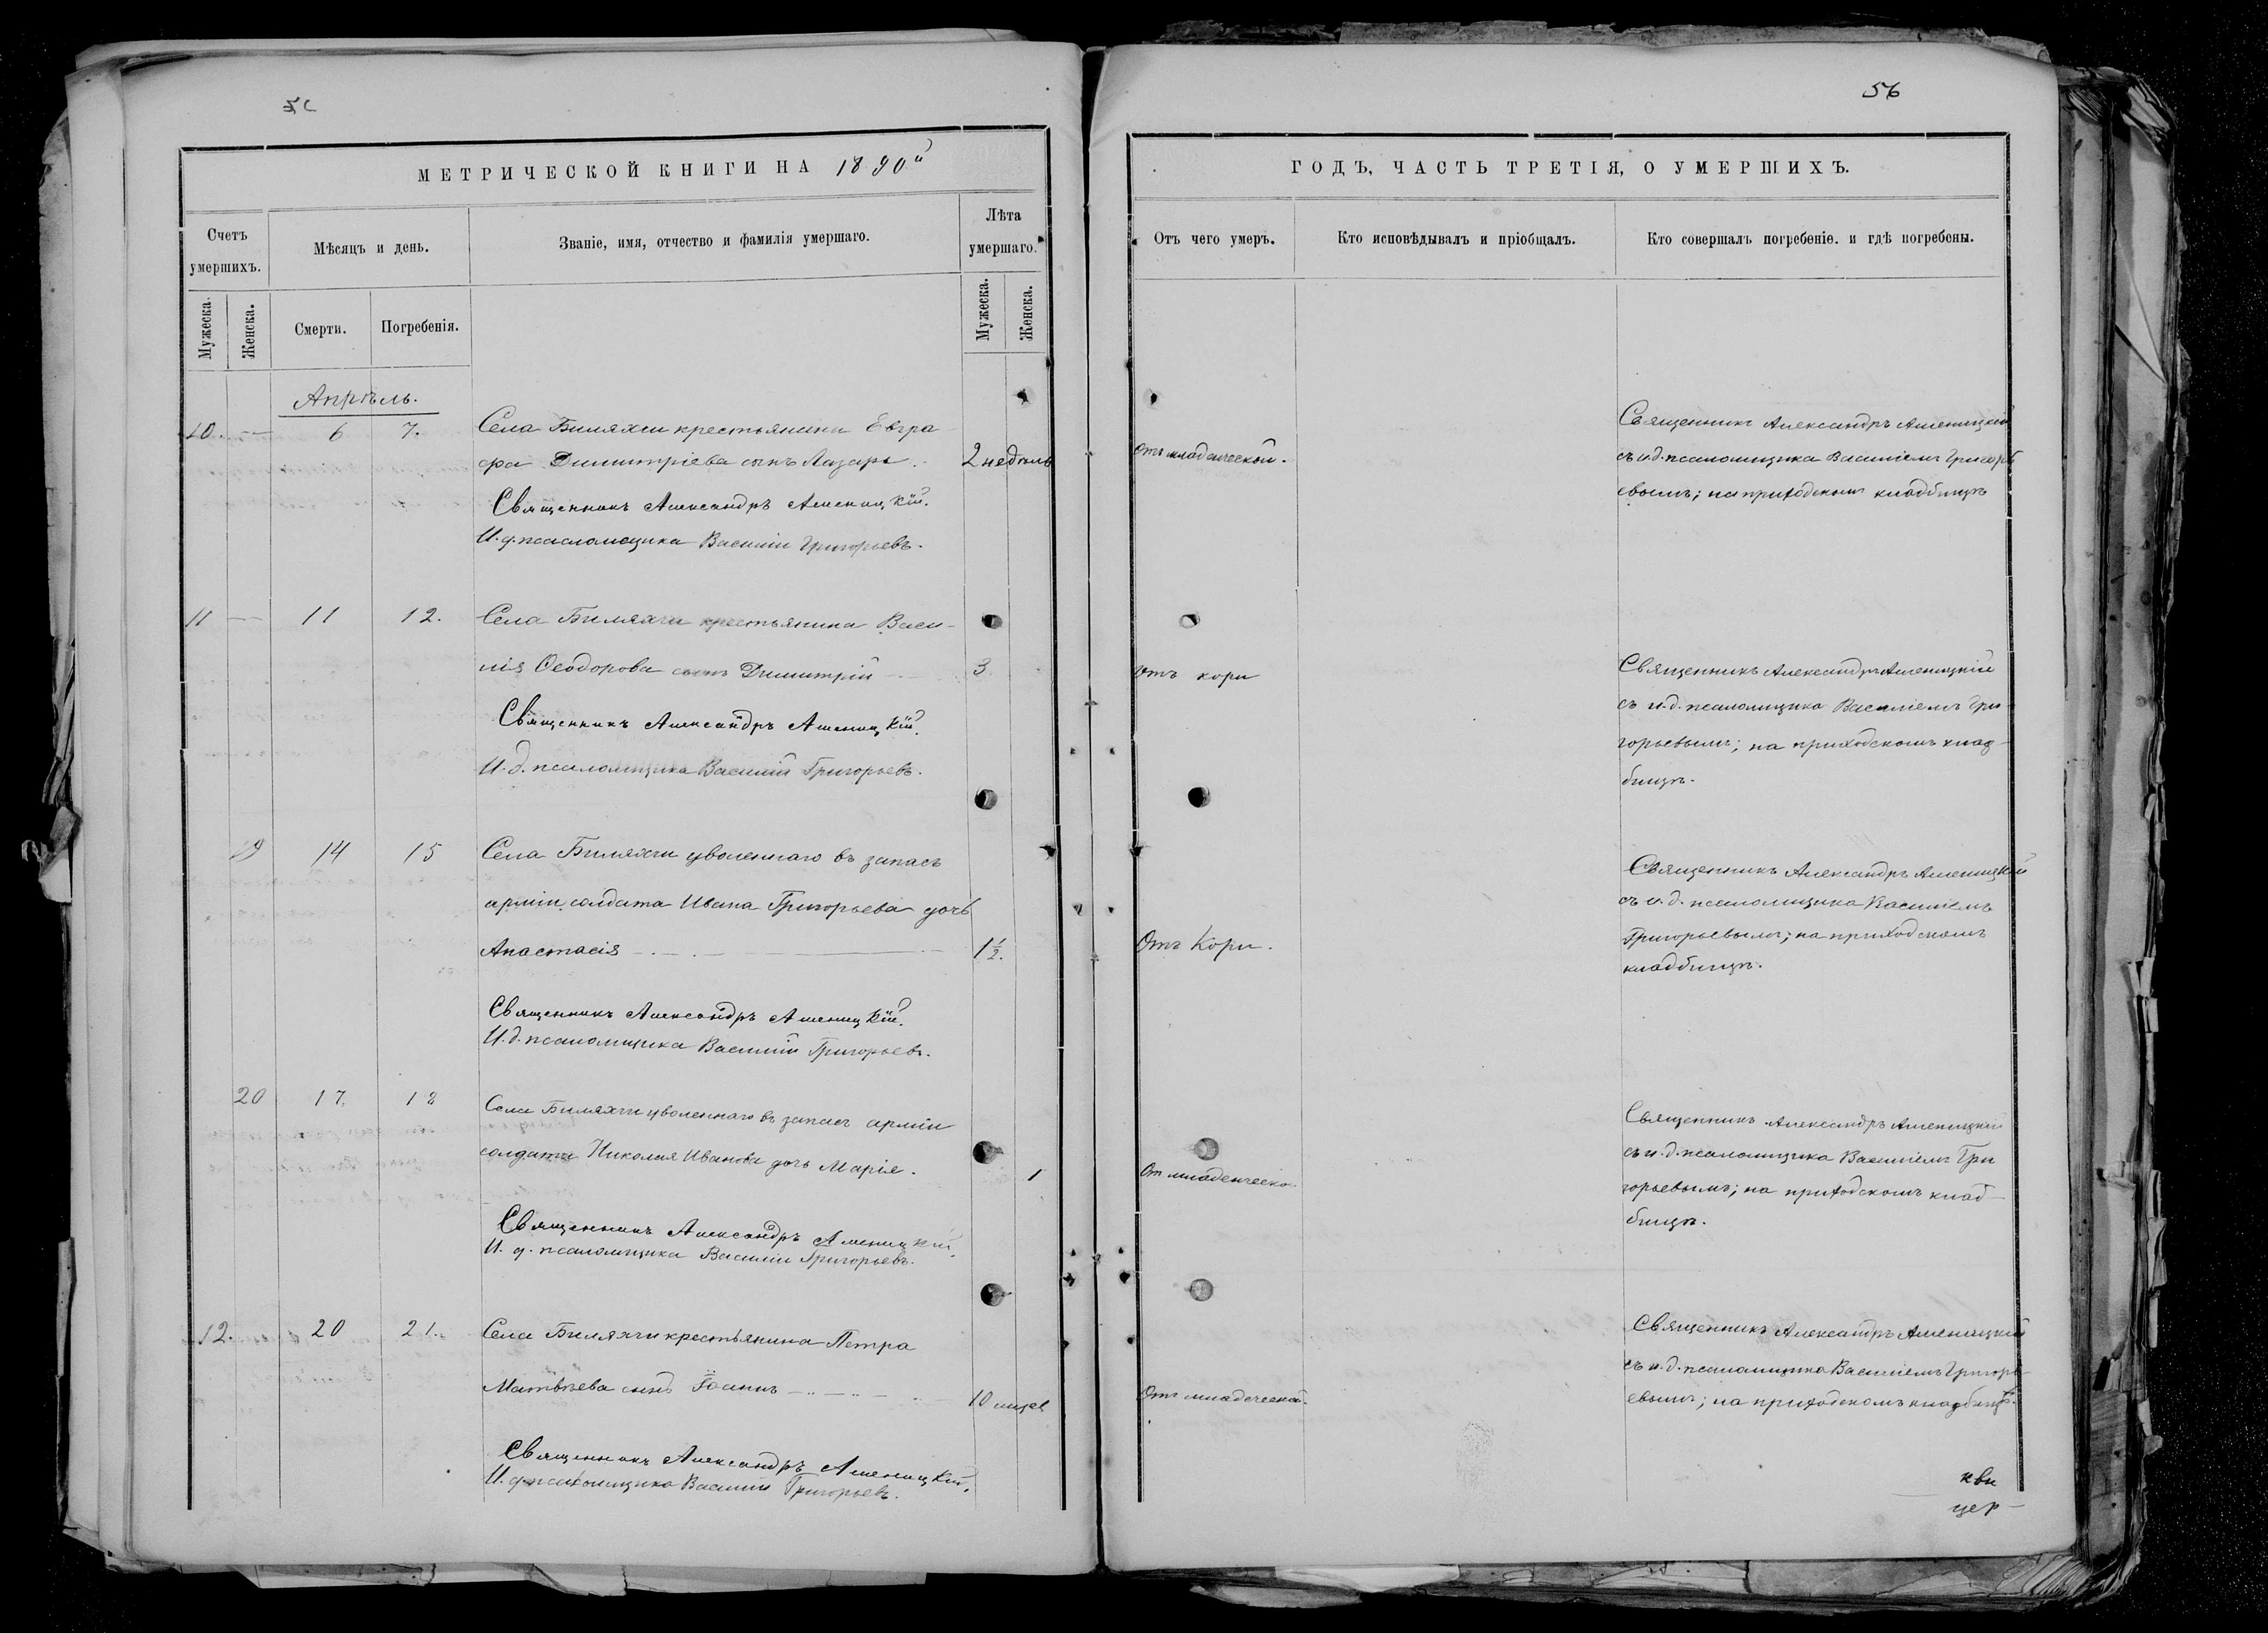 56
МЕТРИЧЕСКОЙ КНИГИ НА 1890й
ГОДЪ, ЧАСТЬ ТРЕТІЯ, О УМЕРШИХЪ.
Счетъ умершихъ.
Мѣсяцъ и день.
Званіе, имя, отчество и фамилія умершаго.
Лѣта умершаго.
Отъ чего умеръ.
Кто исповѣдывалъ и пріобщалъ.
Кто совершалъ погребеніе. и гдѣ погребены.
Мужеска.
Женска.
Смерти.
Погребенія.
Мужеска.
Женска.
Апрѣль.
10. — 6 7. Села Биляхчи крестьянина Евгра
фа Димитріева сынъ Лазарь. 2 недѣль
Священникъ Александръ Аменицкій.
И.д. псаломщика Василій Григорьевъ.
отъ младенческой.
Священникъ Александръ Аменицкій
съ и.д. псаломщика Василіемъ Григорь
евымъ; на приходскомъ кладбищѣ
11 — 11 12. Села Биляхчи крестьянина Васи-
лія Ѳеодорова сынъ Димитрій 3
Священникъ Александръ Аменицкій.
И.д. псаломщика Василій Григорьевъ.
отъ кори
Священникъ Александръ Аменицкій
съ и.д. псаломщика Василіемъ Гри
горьевымъ; на приходскомъ клад-
бищѣ.
19 14 15 Села Биляхчи уволеннаго въ запасъ
арміи солдата Ивана Григорьева дочь
Анастасія 1½.
Священникъ Александръ Аменицкій.
И.д. псаломщика Василій Григорьевъ.
Отъ Кори.
Священникъ Александръ Аменицкій
съ и.д. псаломщика Василіемъ
Григорьевымъ; на приходскомъ
кладбищѣ.
20 17. 18 Села Биляхчи уволеннаго въ запасъ арміи
солдата Николая Иванова дочь Марія. 1
Священникъ Александръ Аменицкій.
И.д. псаломщика Василій Григорьевъ.
От младенческо.
Священникъ Александръ Аменицкій
съ и.д. псаломщика Василіемъ Гри
горьевымъ; на приходскомъ клад-
бищѣ.
12. 20 21. Села Биляхчи крестьянина Петра
Матвѣева сынъ Іоаннъ 10 мцев
Священникъ Александръ Аменицкій.
И.д. псаломщика Василій Григорьевъ.
Отъ младенческой.
Священникъ Александръ Аменицкій
съ и.д. псаломщика Василіемъ Григорь-
евымъ; на приходскомъ кладбищѣ.
кви
цер-